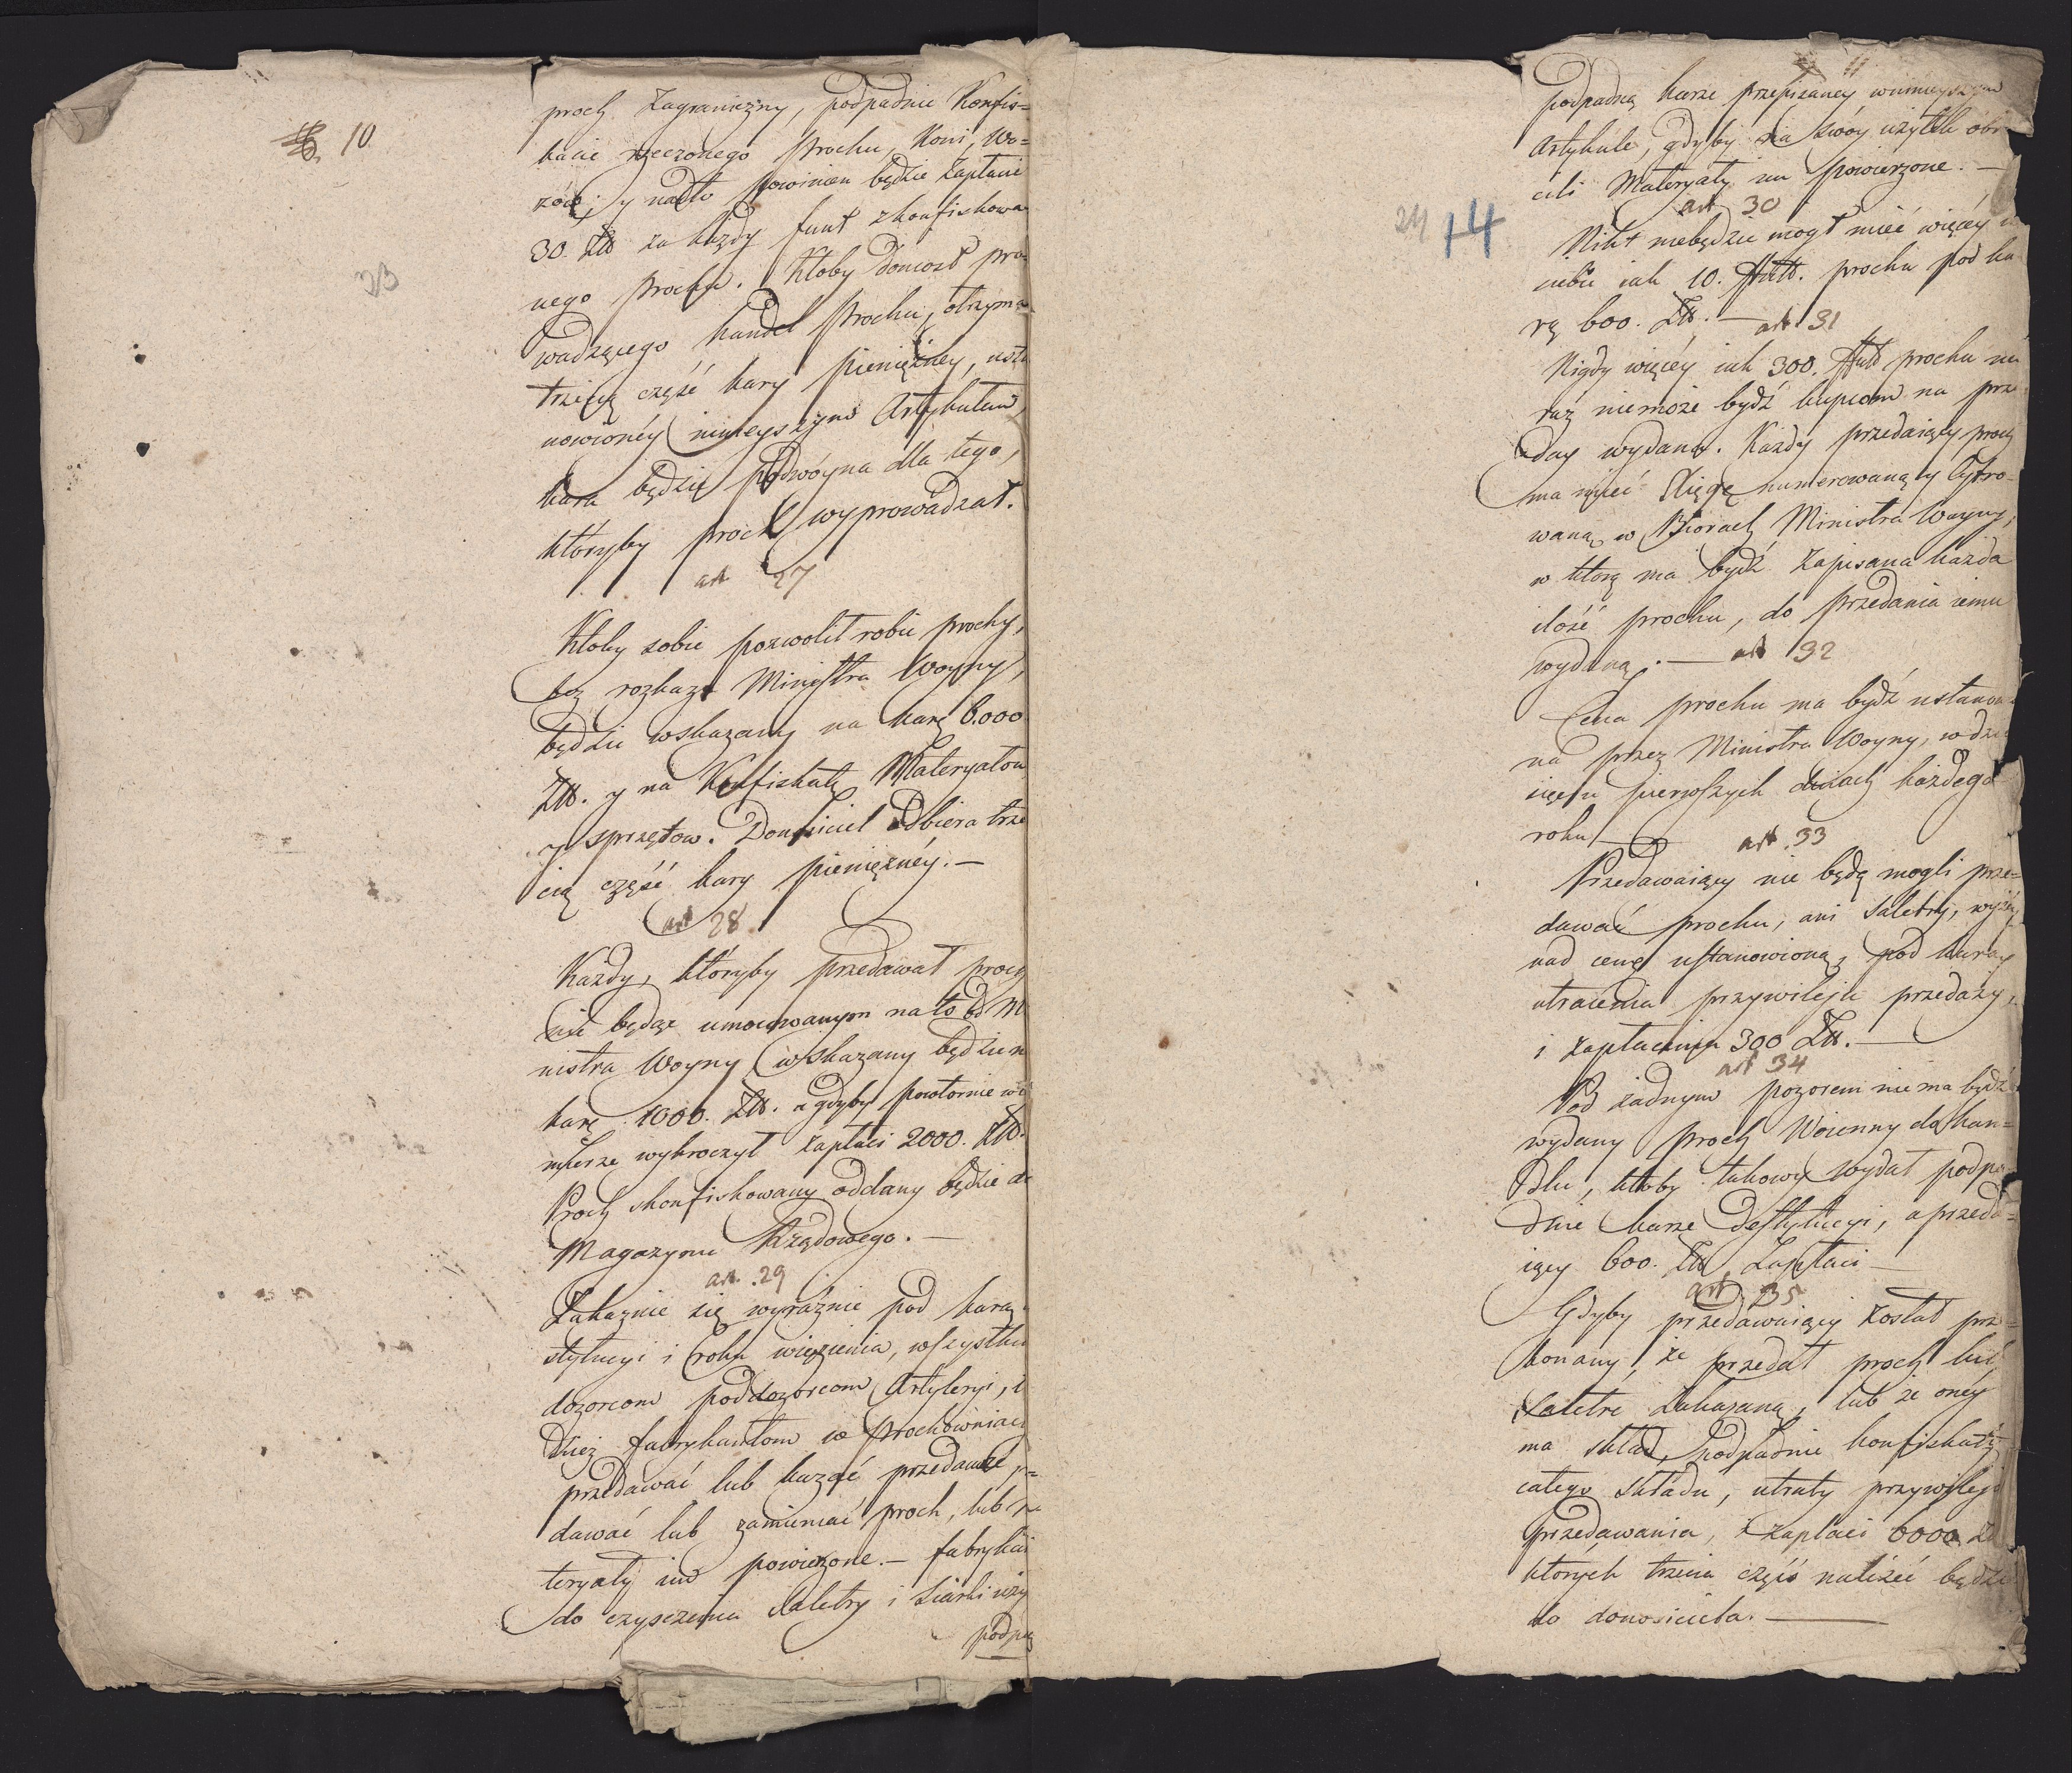 10
23
proch Zagraniczny, podpadnie Konfis=
kacie rzeczonego prochu, Koni, Wo=
zów, y nadto powinien będzie zapłacić
30. Zł za każdy funt zkonfiskowa
nego prochu. Ktoby doniosł pro
wadzącego handel prochu, otrzyma
trzecią część kary pieniężney, usta
nowionéy ninieyszym Artykułem,
kara będzie podwóyna dla tego,
któryby proch wyprowadzał.
art 27
Ktoby sobie pozwolił robić prochy,
bez rozkazu Ministra Woyny,
będzie wskazany na karę 6.000
Złł. y na Konfiskatę Materyałow
y sprzętow. Donosiciel odbiera trze
cią część kary pieniężnéy. —
art 28
Każdy, któryby przedawał proch
nie będąc umocowanym na to od Mi
nistra Woyny wskazany będzie n
karę 1000. Złł. a gdyby powtornie w
mierze wykroczył zapłaci 2000. Złł.
Proch skonfiskowany oddany będzie do
Magazynu Rządowego. —
art. 29
Zakaznie się wyraźnie pod karą
stytucyi i roku więzienia, wszystkim
dozorcom poddozorcom Artyleryi, i
dzież fabrykantom w prochowniach
przedawać lub kazać przedawać,
dawać lub zamieniać proch, lub ma
teryały im powierzone. — fabrykan
do czysczenia Saletry i Siarki uży
podpa
24 14
11
podpadną karze przepisaney w ninieyszym
Artykule, gdyby na swóy użytek obr
cili Materyały im powierzone. —
art 30
Nikt niebędzie mogł mieć więcéy u
siebie iak 10. Funt. prochu pod ka
rą 600. Zł. —
art 31
Nigdy więcéy iak 300. Funt prochu na
raz niemoże bydź kupcom na prze
day wydane. Każdy przedaiący proch
ma mieć Xięgę numerowaną y Cyfro-
waną w Biorach Ministra Woyny,
w którą ma bydź Zapisana każda
ilość prochu, do przedania iemu
wydaną. —
art 32
Cena prochu ma bydź ustanowi
na przez Ministra Woyny, w dzie
sięciu pierwszych dniach każdego
roku —
art. 33
Przedawaiący nie będą mogli prze=
dawać prochu, ani Saletry, wyżéy
nad cenę ustanowioną, pod karą
utracenia przywileju przedaży,
i zapłacenia 300 Zł. —
art 34
Pod żadnym pozorem nie ma bydź
wydany proch Woienny do han=
dlu, ktoby takowy wydał podpa
dnie karze Destytucyi, a przeda=
iący 600. Zł Zapłaci —
art 35
Gdyby przedawaiący został prze=
konany, że przedał proch lub
Saletrę zakazaną, lub że onéy
ma skład, podpadnie konfiskaty
całego składu, utraty przywileju
przedawania, i zapłaci 6000 Zł
których trzecia część należéć będzie
do donosiciela. —